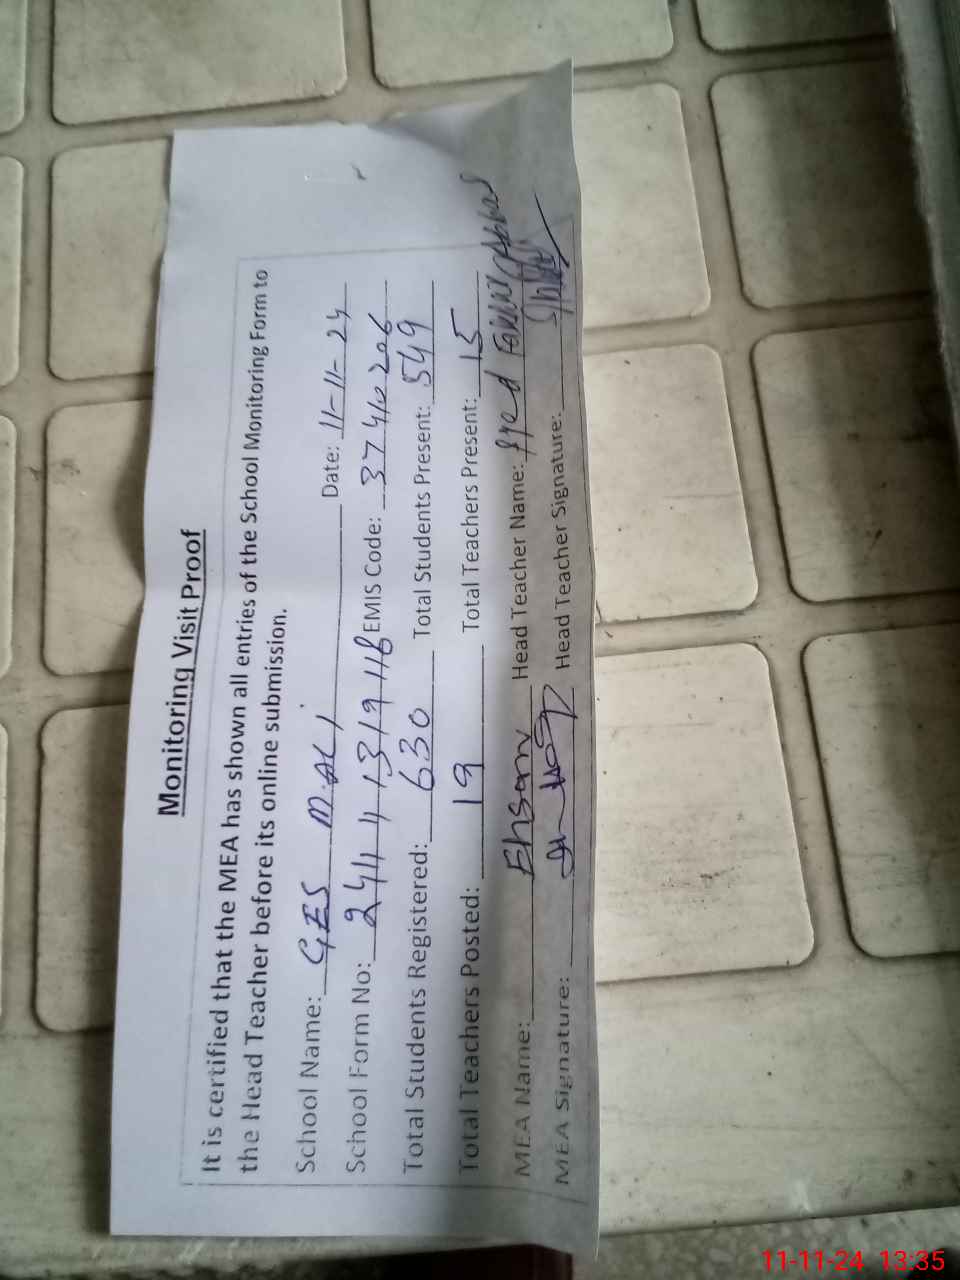 Monitoring Visit Proof
It is certified that the MEA has shown all entries of the School Monitoring Form to
the Head Teacher before its online submission.
School Name: GES Date: 11-11-24
School Form No: EMIS Code: 37410206
Total Students Registered: 630 Total Students Present: 549
Total Teachers Posted: 19 Total Teachers Present: 15
MEA Name: Ehsan Head Teacher Name: Syed Abbas
MEA Signature: Head Teacher Signature:
11-11-24 13:35